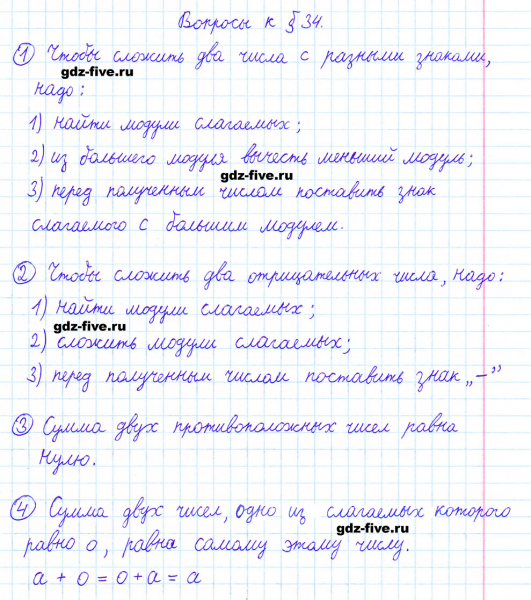 Вопросы к § 34.
① Чтобы сложить два числа с разными знаками,
gdz-five.ru
надо:
1) найти модули слагаемых;
2) из большего модуля вычесть меньший модуль;
gdz-five.ru
3) перед полученным числом поставить знак
слагаемого с большим модулем.
gdz-five.ru
② Чтобы сложить два отрицательных числа, надо:
1) найти модули слагаемых;
gdz-five.ru
2) сложить модули слагаемых;
3) перед полученным числом поставить знак „−”
gdz-five.ru
③ Сумма двух противоположных чисел равна
нулю.
④ Сумма двух чисел, одно из слагаемых которого
gdz-five.ru
равно 0, равна самому этому числу.
a + 0 = 0 + a = a